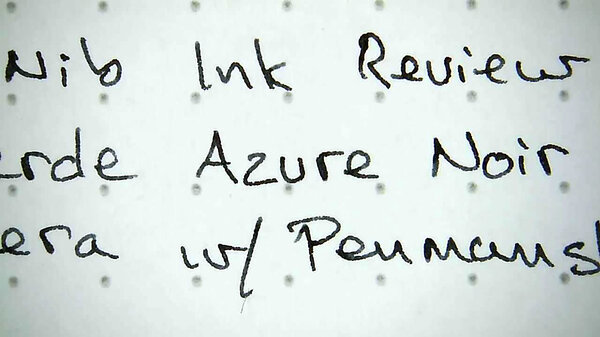 Nib Ink Review
erde Azure Noir
era w/ Penmans